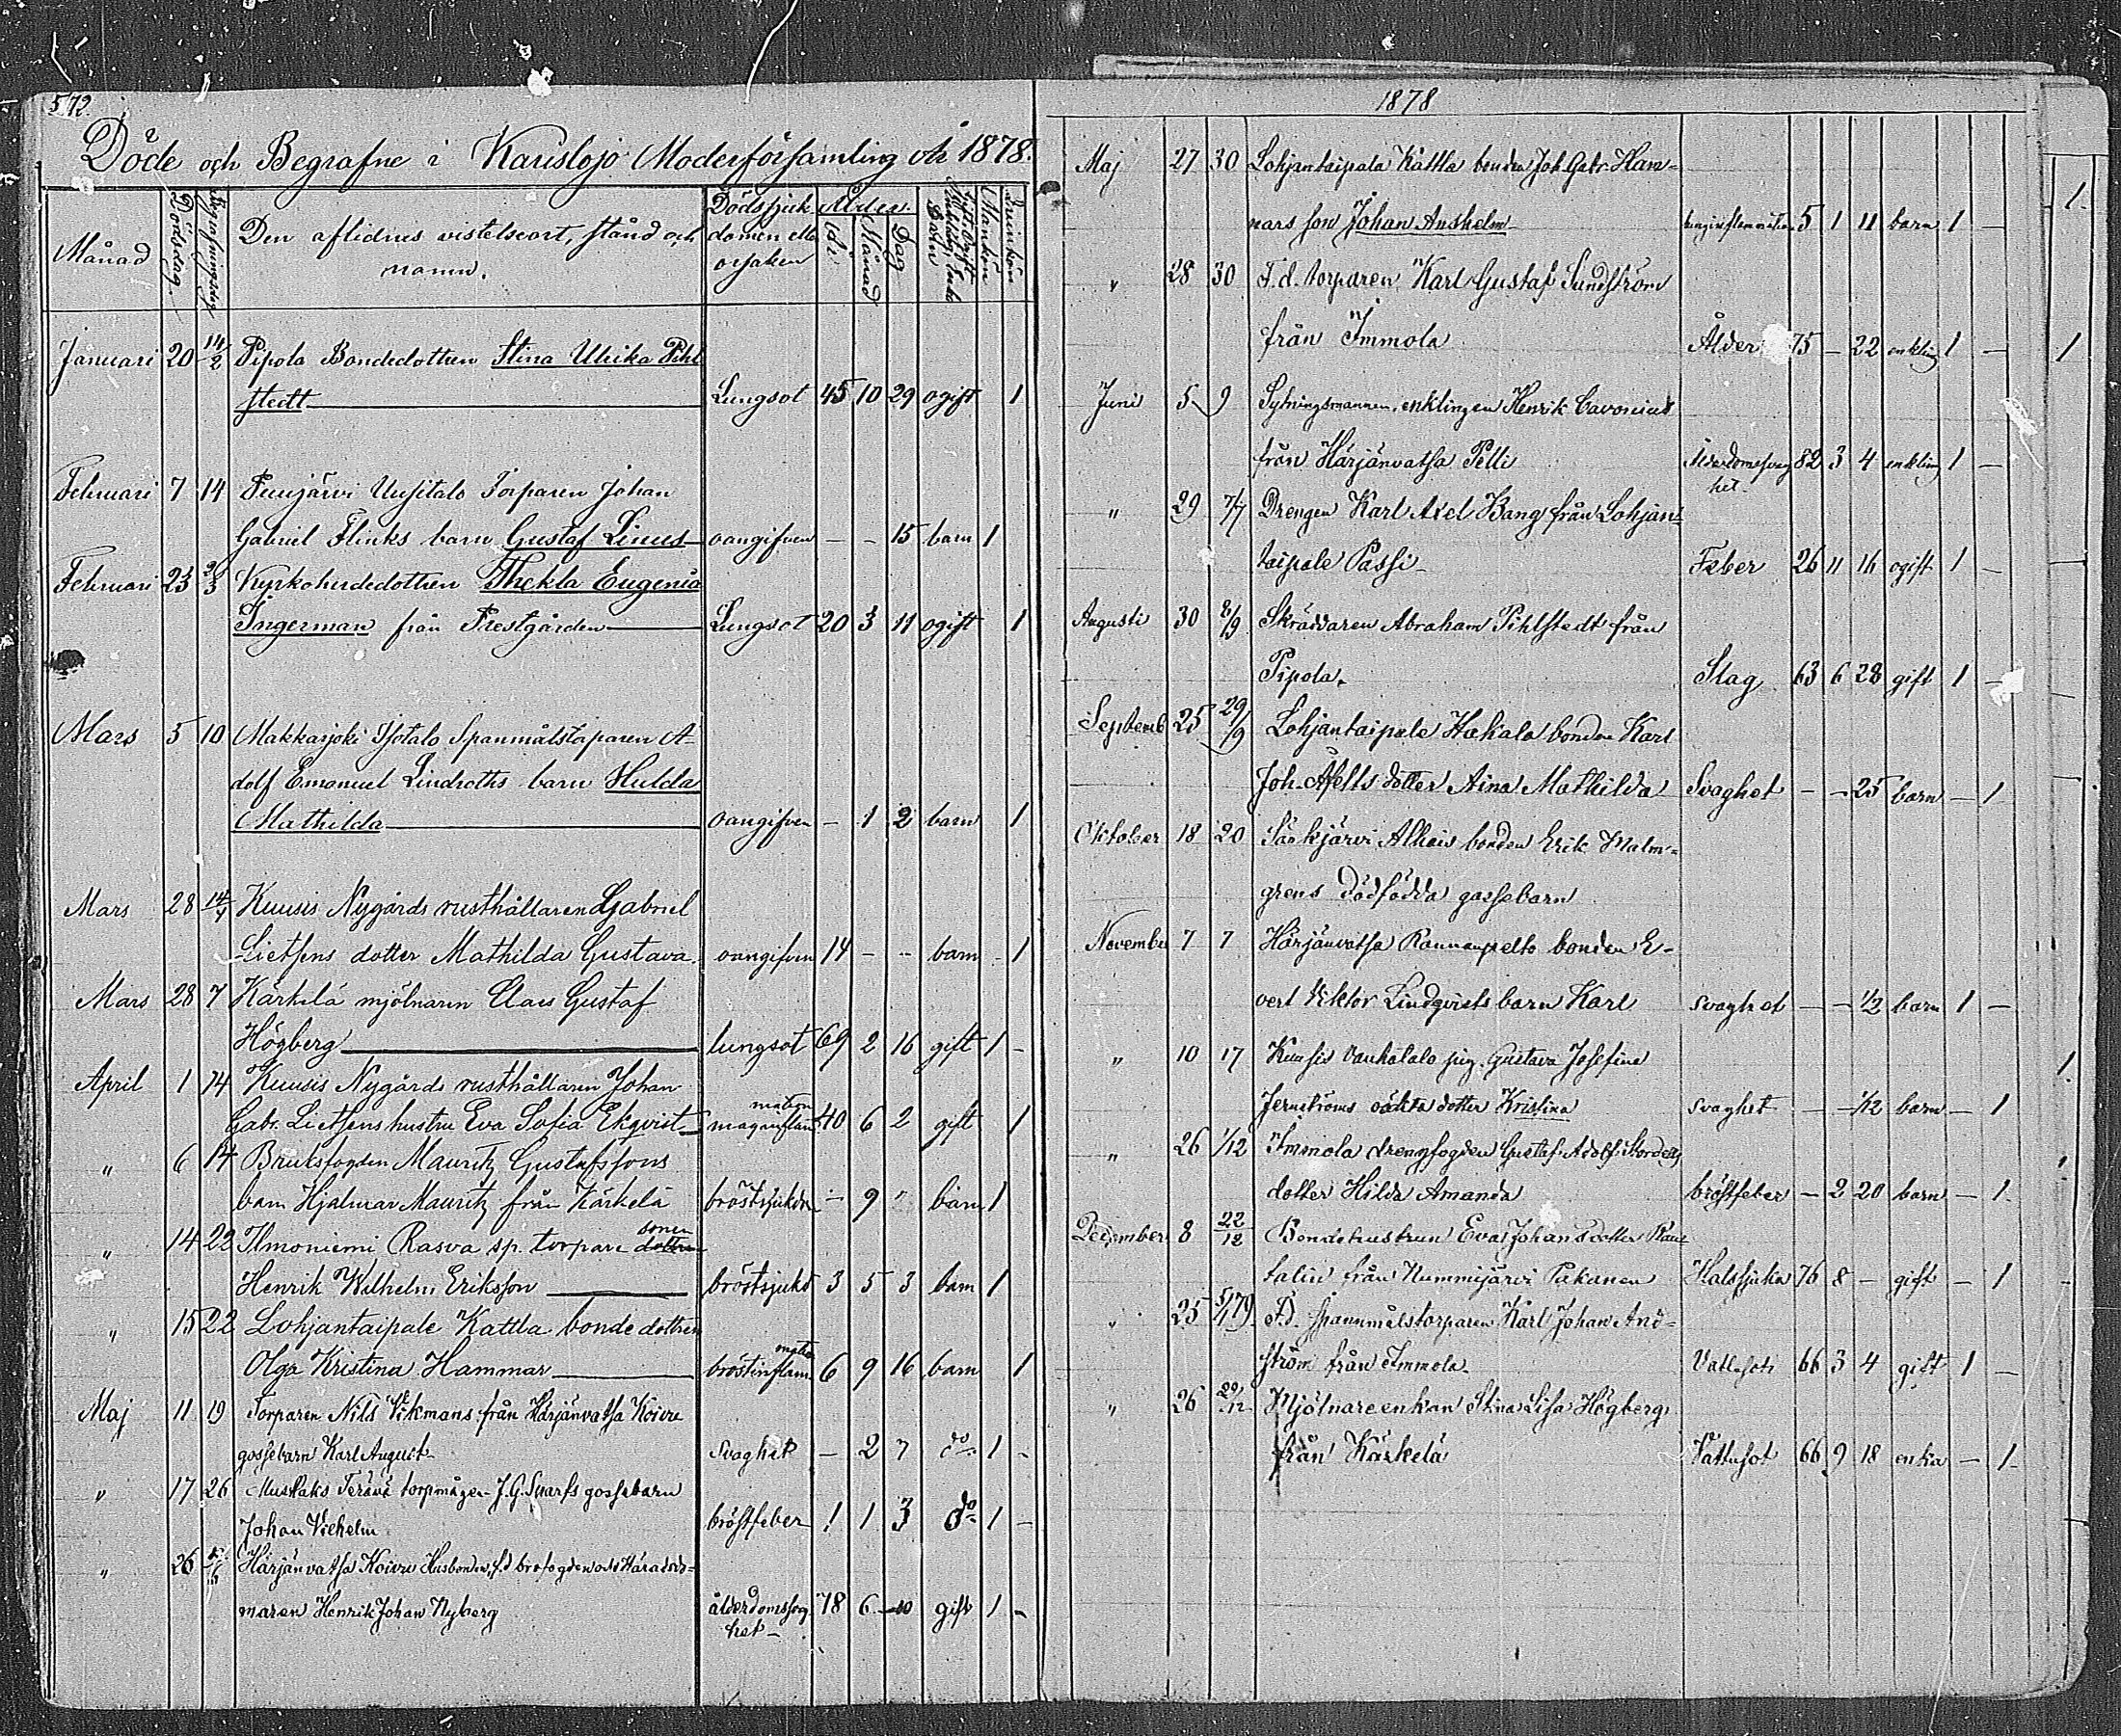 572.
Döde och Begrafne i Karislojo Moderförsamling år 1878.
Månad Dödsdag. Begrafningsdag Den aflidnes vistelseort, stånd och namn. Dödssjuk domen eller orsaken Ålder. År. Månad Dag Barn Mankön Qvinkön
Januari 20 14/2 Pipola Bondedottren Stina Ulrika Pihl
stedt Lungsot 45 10 29 ogift 1
Februari 7 14 Puujärvi Uusitalo Torparen Johan
Gabriel Flinks barn Gustaf Linus oangifven - - 15 barn 1
Februari 23 2/3 Kyrkoherdedottren Thekla Eugenia
Ingerman från Prestgården Lungsot 20 3 11 ogift 1
Mars 5 10 Makkarjoki Isotalo Spanmålstorparen A-
dolf Emanuel Lindroths barn Hulda
Mathilda oangifven - 1 2 barn 1
Mars 28 14/4 Kuusis Nygårds rusthållaren Gabriel
Lietsens dotter Mathilda Gustava. oangifven 14 - - barn - 1
Mars 28 7 Kärkelä mjölnaren Claes Gustaf
Högberg lungsot 69 2 16 gift 1 -
April 1 14 Kuusis Nygårds rusthållaren Johan
Gabr. Lietsens hustru Eva Sofia Ekqvist magainflam mation 40 6 2 gift 1
" 6 14 Bruksfogden Mauritz Gustafssons
barn Hjalmar Mauritz från Kärkelä bröstsjukdom - 9 " barn 1
" 14 22 Ilmoniemi Rasva sp. torpare dottren sonen
Henrik Wilhelm Eriksson bröstsjukd 3 5 3 barn 1
" 15 22 Lohjantaipale Kattla bonde dottren
Olga Kristina Hammar bröstinflam mation 6 9 16 barn 1
Maj 11 19 Torparen Nils Vikmans från Härjänvatsa Koivu
gossebarn Karl August Svaghet - 2 7 do 1 -
" 17 26 Mustlaks Terävä torpmågen J.G. Snarfs gossebarn
Johan Vilhelm bröstfeber 1 1 3 do 1 -
" 26 Härjänvatsa Koivu Husbonden, f.d. brofogden och Häradsdo-
maren Henrik Johan Nyberg ålderdomssvag het - 78 6 10 gift 1 -
1878
Maj 27 30 Lohjantaipala Kattla bonden Joh. Gabr. Ham-
mars son Johan Anshelm lunginflammation 5 1 11 barn 1 -
" 28 30 F.d. torparen Karl Gustaf Sundström
från Immola Ålder 75 - 22 enkling 1 -
Juni 5 9 Sytningsmannen, enklingen Henrik Cavonius
från Härjänvatsa Pelli Ålderdomssvag het 82 3 4 enkling 1 -
" 29 7/7 Drengen Karl Axel Bang från Lohjan-
taipale Passi Feber 26 11 16 ogift 1 -
Augusti 30 8/9 Skräddaren Abraham Pihlstedt från
Pipola. Slag 63 6 28 gift 1 -
Septemb 25 29/9 Lohjantaipale Hakala bonden Karl
Joh. Afells dotter Aina Mathilda Svaghet - - 25 barn - 1
Oktober 18 20 Särkjärvi Alhais bonden Erik Malm-
grens dödfödda gossebarn
November 7 7 Härjänvatsa Rannanpelto bonden E-
vert Viktor Lindqvists barn Karl svaghet - - 1/2 barn 1 -
" 10 17 Kuusis Vanhatalo pig. Gustava Josefina
Jernströms oäkta dotter Kristina svaghet - - 1/12 barn - 1
" 26 1/12 Immola drengfogden Gustaf Adolf
dotter Hilda Amanda bröstfeber - 2 20 barn - 1
December 8 22/12 Bondehustrun Eva Johansdotter
talin från Nummijärvi Pakanen Halssjuka 76 8 - gift - 1
" 25 5/1 79 F.d. spannmålstorparen Karl Johan And-
ström från Immola Vattusot 66 3 4 gift 1 -
" 26 29/12 Mjölnareenkan Stina Lisa Högberg
från Kärkelä Vattusot 66 9 18 enka - 1